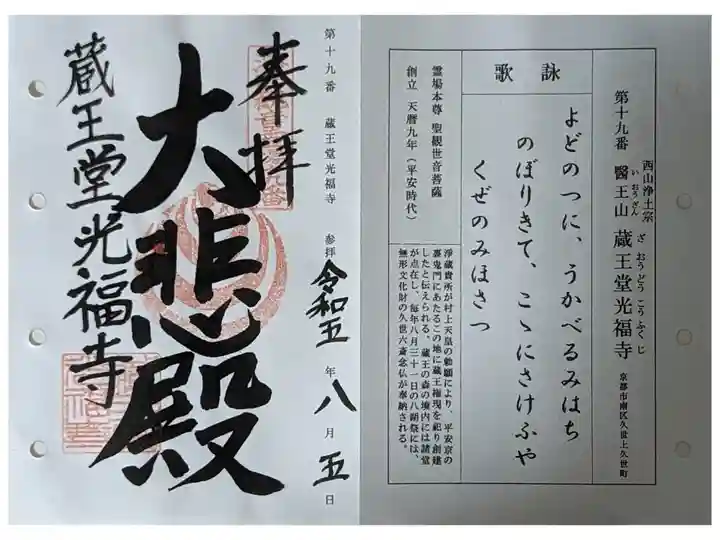 第十九番
西山浄土宗
醫王山 蔵王堂光福寺
いおうざん ざおうどうこうふくじ
京都市南区久世上久世町
詠歌
よどのつに、うかべるみはち
のぼりきて、こゝにさけふや
くぜのみほさつ
霊場本尊 聖観世音菩薩
創立 天暦九年(平安時代)
浄蔵貴所が村上天皇の勅願により、平安京の
裏鬼門にあたるこの地に蔵王権現を祀り創建
したと伝えられる。蔵王の森の境内には諸堂
が点在し、毎年八月三十一日の八朔祭には、
無形文化財の久世六斎念仏が奉納される。
第十九番 蔵王堂光福寺 参拝 令和五年八月五日
奉拝
大悲殿
蔵王堂光福寺